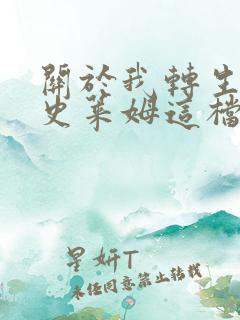 關於我轉生
史萊姆這檔
星妍T
未经同意禁止转载